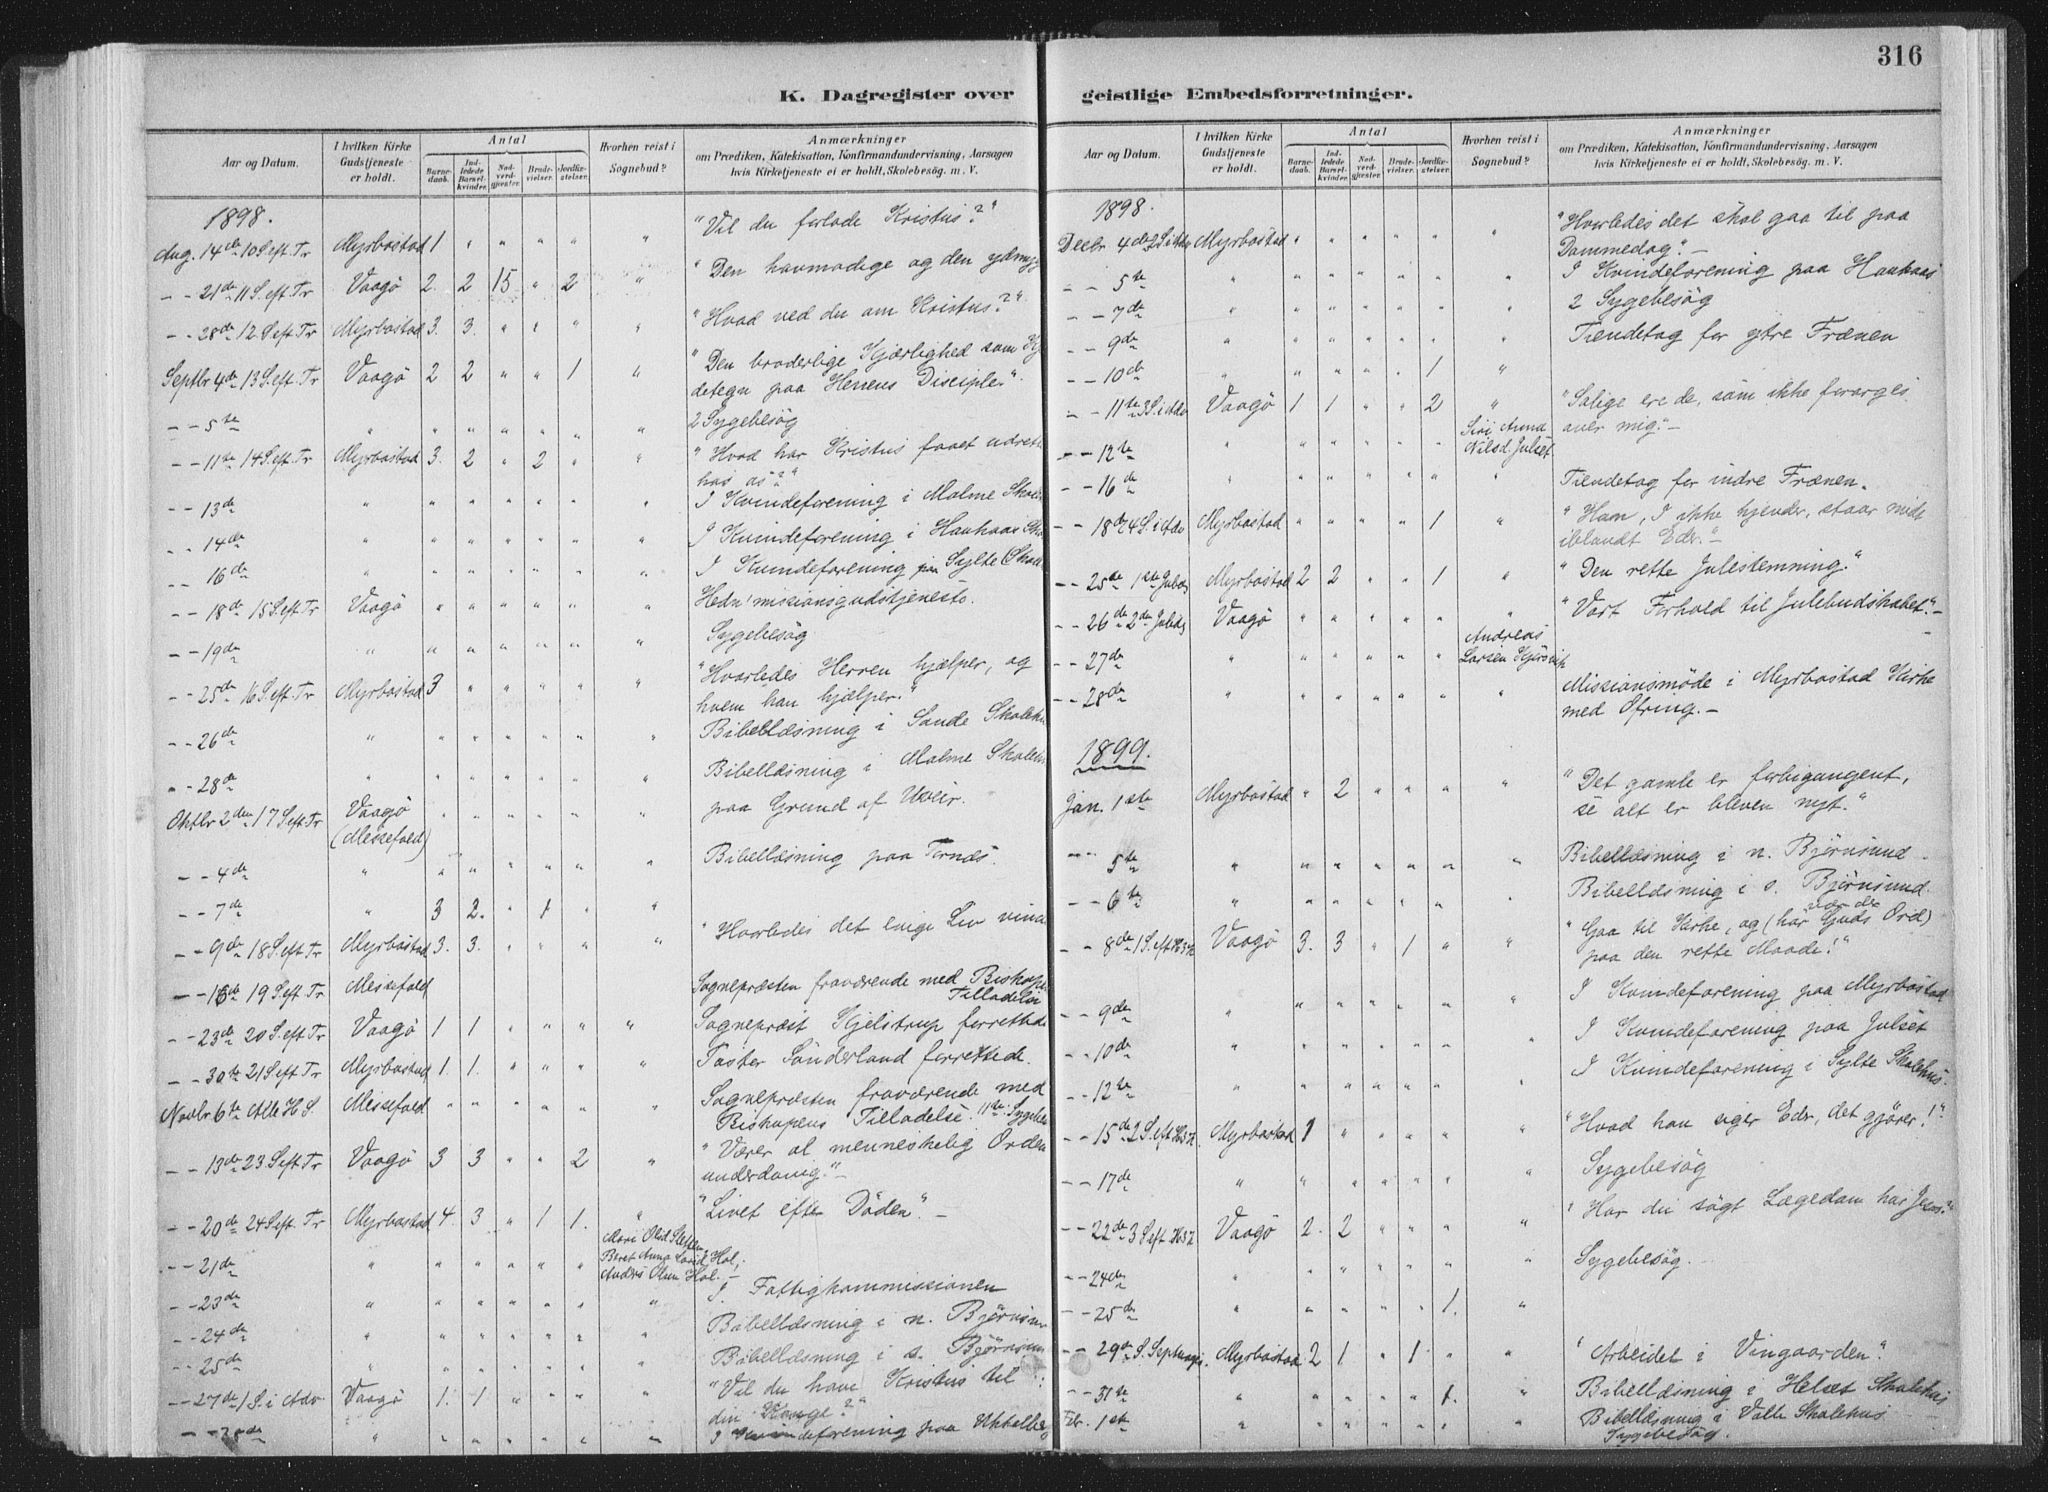 316
K. Dagregister over geistlige Embedsforretninger.
Aar og Datum.
I hvilken Kirke Gudstjeneste er holdt.
Antal
Barnedaab.
Indledede Barselkvinder.
Nadverdgjæster.
Brudevielser.
Jordfæstelser.
Hvorhen reist i Sognebud?
Anmærkninger
om Prædiken, Katekisation, Konfirmandundervisning, Aarsagen
hvis Kirketjeneste ei er holdt, Skolebesøg. m. V.
1898.
Aug. 14de 10 S. eft Tr Myrbostad 1 " " " " " "Vil du forlade Kristus?"
- - 21de 11 S. eft. Tr Vaagö 2. 2 15. " 2 " "Den hovmodige og den ydmyg
- - 28de 12 S. eft Tr Myrbostad 3. 3. " " " " "Hvad ved du om Kristus?"
Septbr 4de 13 S. eft. Tr Vaagö 2 2 " " 1 " "Den broderlige Kjærlighed som
detegn paa Herrens Disciple".
- - 5te " " " " " " " 2 Sygebesög
- - 11te 14 S. eft Tr Myrbostad 3. 2 " 2 " " "Hvad har Kristus faaet udret
hos os?"
- - 13de " " " " " " " I Kvindeforening i Malme Skole
- - 14de " " " " " " " I Kvindeforening i Haukaas
- - 16de " " " " " " " I Kvindeforening paa Sylte Skole
- - 18de 15 S. eft Tr Vaagö " " " " " " Hedn: missionsgudstjeneste.
- - 19de " " " " " " " Sygebesög
- - 25de 16 S. eft Tr Myrbostad 3 " " " " " "Hvorledes Herren hjælper, og
hvem han hjælper."
- - 26de " " " " " " " Bibellæsning i Sande Skoleh
- - 28de " " " " " " " Bibellæsning i Malme Skoleh
Oktbr 2den 17 S. eft Tr Vaagö " " " " " " paa Grund af Uveir.
(Messefald)
- - 4de " " " " " " " Bibellæsning paa Tornes.
- - 7de " 3 2. " 1 " "
- - 9de 18 S. eft Tr Myrbostad 3. 3. " " " " "Hvorledes det evige Liv vind
- - 16de 19 S. eft Tr Messefald Sognepræsten fraværende med Biskopens
Tilladelse
- - 23de 20 S. eft Tr Vaagö 1 1 " " " " Sognepræst Kjelstrup forrettede
- - 30te 21 S eft Tr Myrbostad 1. 1. " " " " Pastor Sönderland forrettede.
Novbr 6te Alle H S. Messefald " " " " " " Sognepræsten fraværende med
Biskopens Tilladelse. 11te: Sygebes
- - 13de 23 S. eft Tr Vaagö 3 3 " " 2 " "Værer al menneskelig Orden
underdanig." -
- - 20de 24 S eft. Tr Myrbostad 4. 3 " 1 1. " "Livet efter Döden". -
- - 21de " " " " " " Beret Anna Hol,
Anders Olsen Hol. -
- - 23de " " " " " " " I Fattigkommissionen
- - 24de " " " " " " " Bibellæsning i n. Björnsun
- - 25de " " " " " " " Bibellæsning i s. Björnsun
- - 27de 1 S. i Adv. Vaagö 1. 1 " " " " "Vil du have Kristus til
din Konge?"
" " " " " " " I Kvindeforening paa
K. Dagregister over geistlige Embedsforretninger.
Aar og Datum.
I hvilken Kirke Gudstjeneste er holdt.
Antal
Barnedaab.
Indledede Barselkvinder.
Nadverdgjæster.
Brudevielser.
Jordfæstelser.
Hvorhen reist i Sognebud?
Anmærkninger
om Prædiken, Katekisation, Konfirmandundervisning, Aarsagen
hvis Kirketjeneste ei er holdt, Skolebesøg. m. V.
1898.
Decbr 4de 2 S i Adv Myrbostad " " " " " " "Hvorledes det skal gaa til paa
Dommedag". -
- - 5te " " " " " " " I Kvindeforening paa Haukaas
- - 7de " " " " " " " 2 Sygebesög
- - 9de " " " " " " " Tiendetag for ytre Frænen
- - 10de " " " " " 1 "
- - 11te 3 S. i Adv Vaagö 1 1 " " 2 " "Salige ere de, som ikke forarges
over mig". -
- - 12te " " " " " " Siri Anna
Nilsd. Julset
- - 16de " " " " " " " Tiendetag for indre Frænen.
- - 18de 4 S. i Adv Myrbostad " " " " 1 " "Ham, I ikke kjender, staar midt
iblandt Eder". -
- - 25de 1ste Juledag Myrbostad 2 2 " " 1 " "Den rette Julestemning."
- - 26de 2den Juledag Vaagö " " " " " " "Vort Forhold til Julebudskabet". -
- - 27de " " " " " " Andreas
Larsen
- - 28de " " " " " " " Missionsmöde i Myrbostad Kirke
med Ofring. -
1899.
Jan. 1ste Myrbostad " 2 " " " " "Det gamle er forbigangent,
se alt er bleven nyt."
- - 5te " " " " " " " Bibellæsning i n. Björnsund.
- - 6te " " " " " " " Bibellæsning i s. Björnsund.
- - 8de 1 S. eft H3K Vaagö 3. 3 " 1 " " "Gaa til Kirke, og (hör Guds Ord)
paa den rette Maade!"
- - 9de " " " " " " " I Kvindeforening paa Myrbostad
- - 10de " " " " " " " I Kvindeforening paa Julset
- - 12te " " " " " " " I Kvindeforening i Sylte Skolehus.
- - 15de 2 S. eft H3K. Myrbostad 1 " " " " " "Hvad han siger Eder, det gjörer!"
- - 17de " " " " " " " Sygebesög
- - 22de 3 S eft H3K Vaagö 2. 2 " " " " "Har du sögt Lægedom hos Jesus?"
- - 24de " " " " " " " Sygebesög.
- - 25de " " " " " 1. "
- - 29de S. Septuages. Myrbostad 2 1 " 1 " " "Arbeidet i Vingaarden".
- - 31te " " " " " 1. " Bibellæsning i Helset Skolehus
Feb. 1ste " " " " " " " Bibellæsning i Valle Skolehus
Sygebesög.